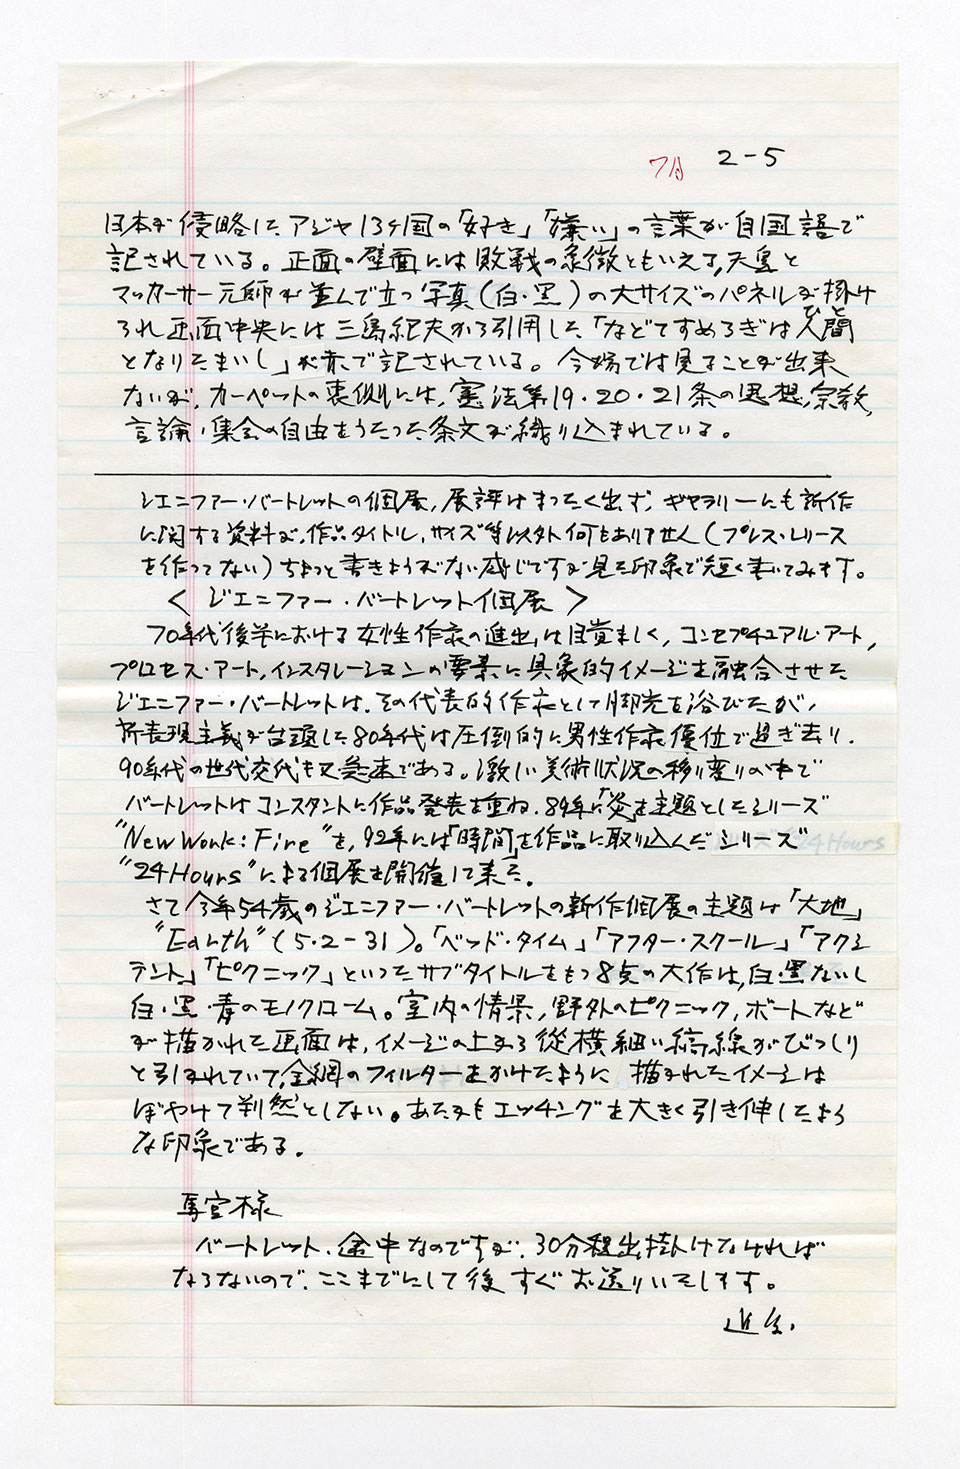 7月 2-5
日本が侵略した アジヤ13ヶ国の「好き」「嫌い」の言葉が自国語で
記されている。正面の壁面には敗戦の象徴ともいえる,天皇と
マッカーサー元師が並んで立つ写真(白・黒)の大サイズのパネルが掛け
られ画面中央には三島紀夫から引用した「などてすめろぎは人間
ひと
となりたまいし」が赤で記されている。今場では見ることが出来
ないが,カーペットの裏側には,憲法第19・20・21条の思想,宗教,
言論・集会の自由をうたった条文が織り込まれている。
ジエニファー・バートレットの個展,展評はまったく出ず,ギャラリーにも新作
に関する資料が,作品タイトル,サイズ等以外何もありません(プレス・レリース
を作ってない)ちょっと書きようがない感じですが見た印象で短く書いてみます。
<ジエニファー・バートレット個展>
70年代後半における女性作家の進出は目覚ましく,コンセプチュアル・アート,
プロセス・アート,インスタレーションの要素に具象的イメージを融合させた
ジエニファー・バートレットは,その代表的作家として脚光を浴びたが,
新表現主義が台頭した80年代は圧倒的に男性作家優位で過ぎ去り,
90年代の世代交代も又急速である。激しい美術状況の移り変りの中で
バートレットはコンスタントに作品発表を重ね,89年に「炎」を主題としたシリーズ
"New Work: Fire"を,92年には「時間」を作品に取り込んだシリーズ
"24Hours"による個展を開催して来た。
さて今年54歳のジエニファー・バートレットの新作個展の主題は「大地」
"Earth"(5・2-31)。「ベッド・タイム」「アフター・スクール」「アクシ
デント」「ピクニック」といったサブタイトルをもつ8点の大作は,白・黒ないし
白・黒・青のモノクローム。室内の情景,野外のピクニック,ボートなど
が描かれた画面は,イメージの上から縦横細い縞線がびっしり
と引かれていて,金網のフィルターをかけたように 描かれたイメージは
ぼやけて判然としない。あたかもエッチングを大きく引き伸したよう
な印象である。
馬宮様
バートレット,途中なのですが,30分程出掛けなければ
ならないので,ここまでにして後すぐお送りいたします。